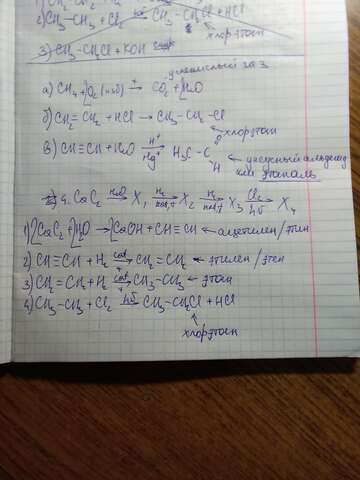 2) CH₃-CH₃ + Cl₂ → CH₃-CH₂Cl + HCl
хлорэтан
3) CH₃-CH₂Cl + KOH
углекислый газ
а) CH₄ + 2O₂ (изб) →ᵗ CO₂ + 2H₂O
б) CH₂=CH₂ + HCl → CH₃-CH₂-Cl
хлорэтан
в) CH≡CH + H₂O →(H⁺, Hg²⁺) H₃C-C(O)(H) уксусный альдегид
или этаналь
4. CaC₂ →(H₂O) X₁ →(H₂, кат, t) X₂ →(H₂, кат, t) X₃ →(Cl₂, hδ) X₄
1) 2CaC₂ + 2H₂O → 2CaOH + CH≡CH ← ацетилен/этин
2) CH≡CH + H₂ →(cat, t) CH₂=CH₂ ← этилен/этен
3) CH₂=CH₂ + H →(cat, t) CH₃-CH₃ ← этан
4) CH₃-CH₃ + Cl₂ →(hδ) CH₃-CH₂Cl + HCl
хлорэтан